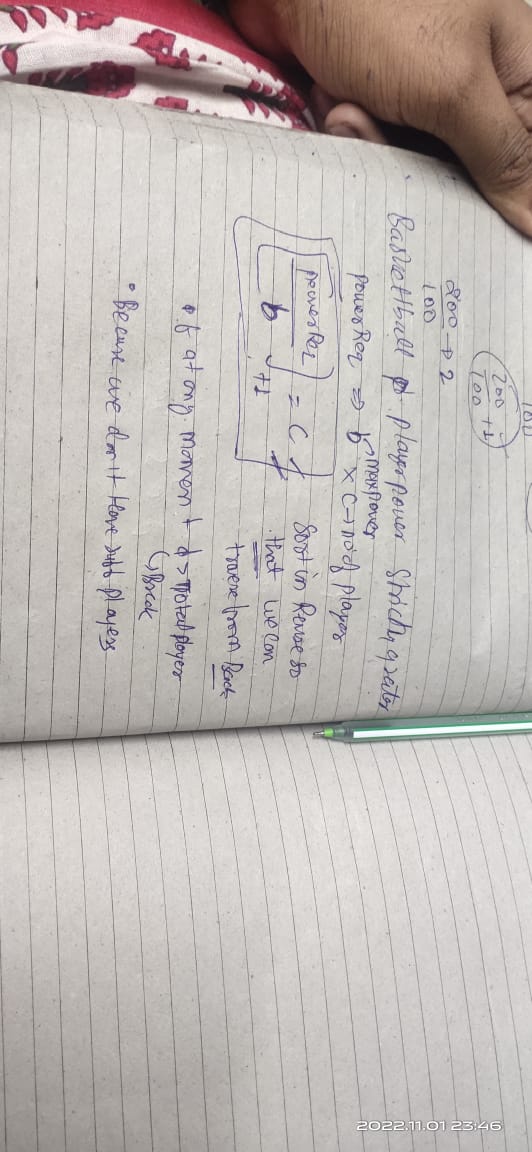 100
200
100 +1
200 → 2
100
Basketball player power strictly greater
PowerReq ⇒ b × C → no of player
maxpower
powerReq
b
+1
= C
Sort in Reverse so
that we can
traverse from Back
if at any moment > total player
↳ Break
• Because we don't have players
2022.11.01 23:46